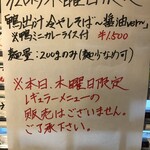 鴨出汁冷やしそば~醤油ver~
※鴨ミニカレーライス付 ¥1,500
麺量:200gのみ(麺少なめ可)
※本日、木曜日限定
レギュラーメニューの
販売はございません。
ご了承下さい。